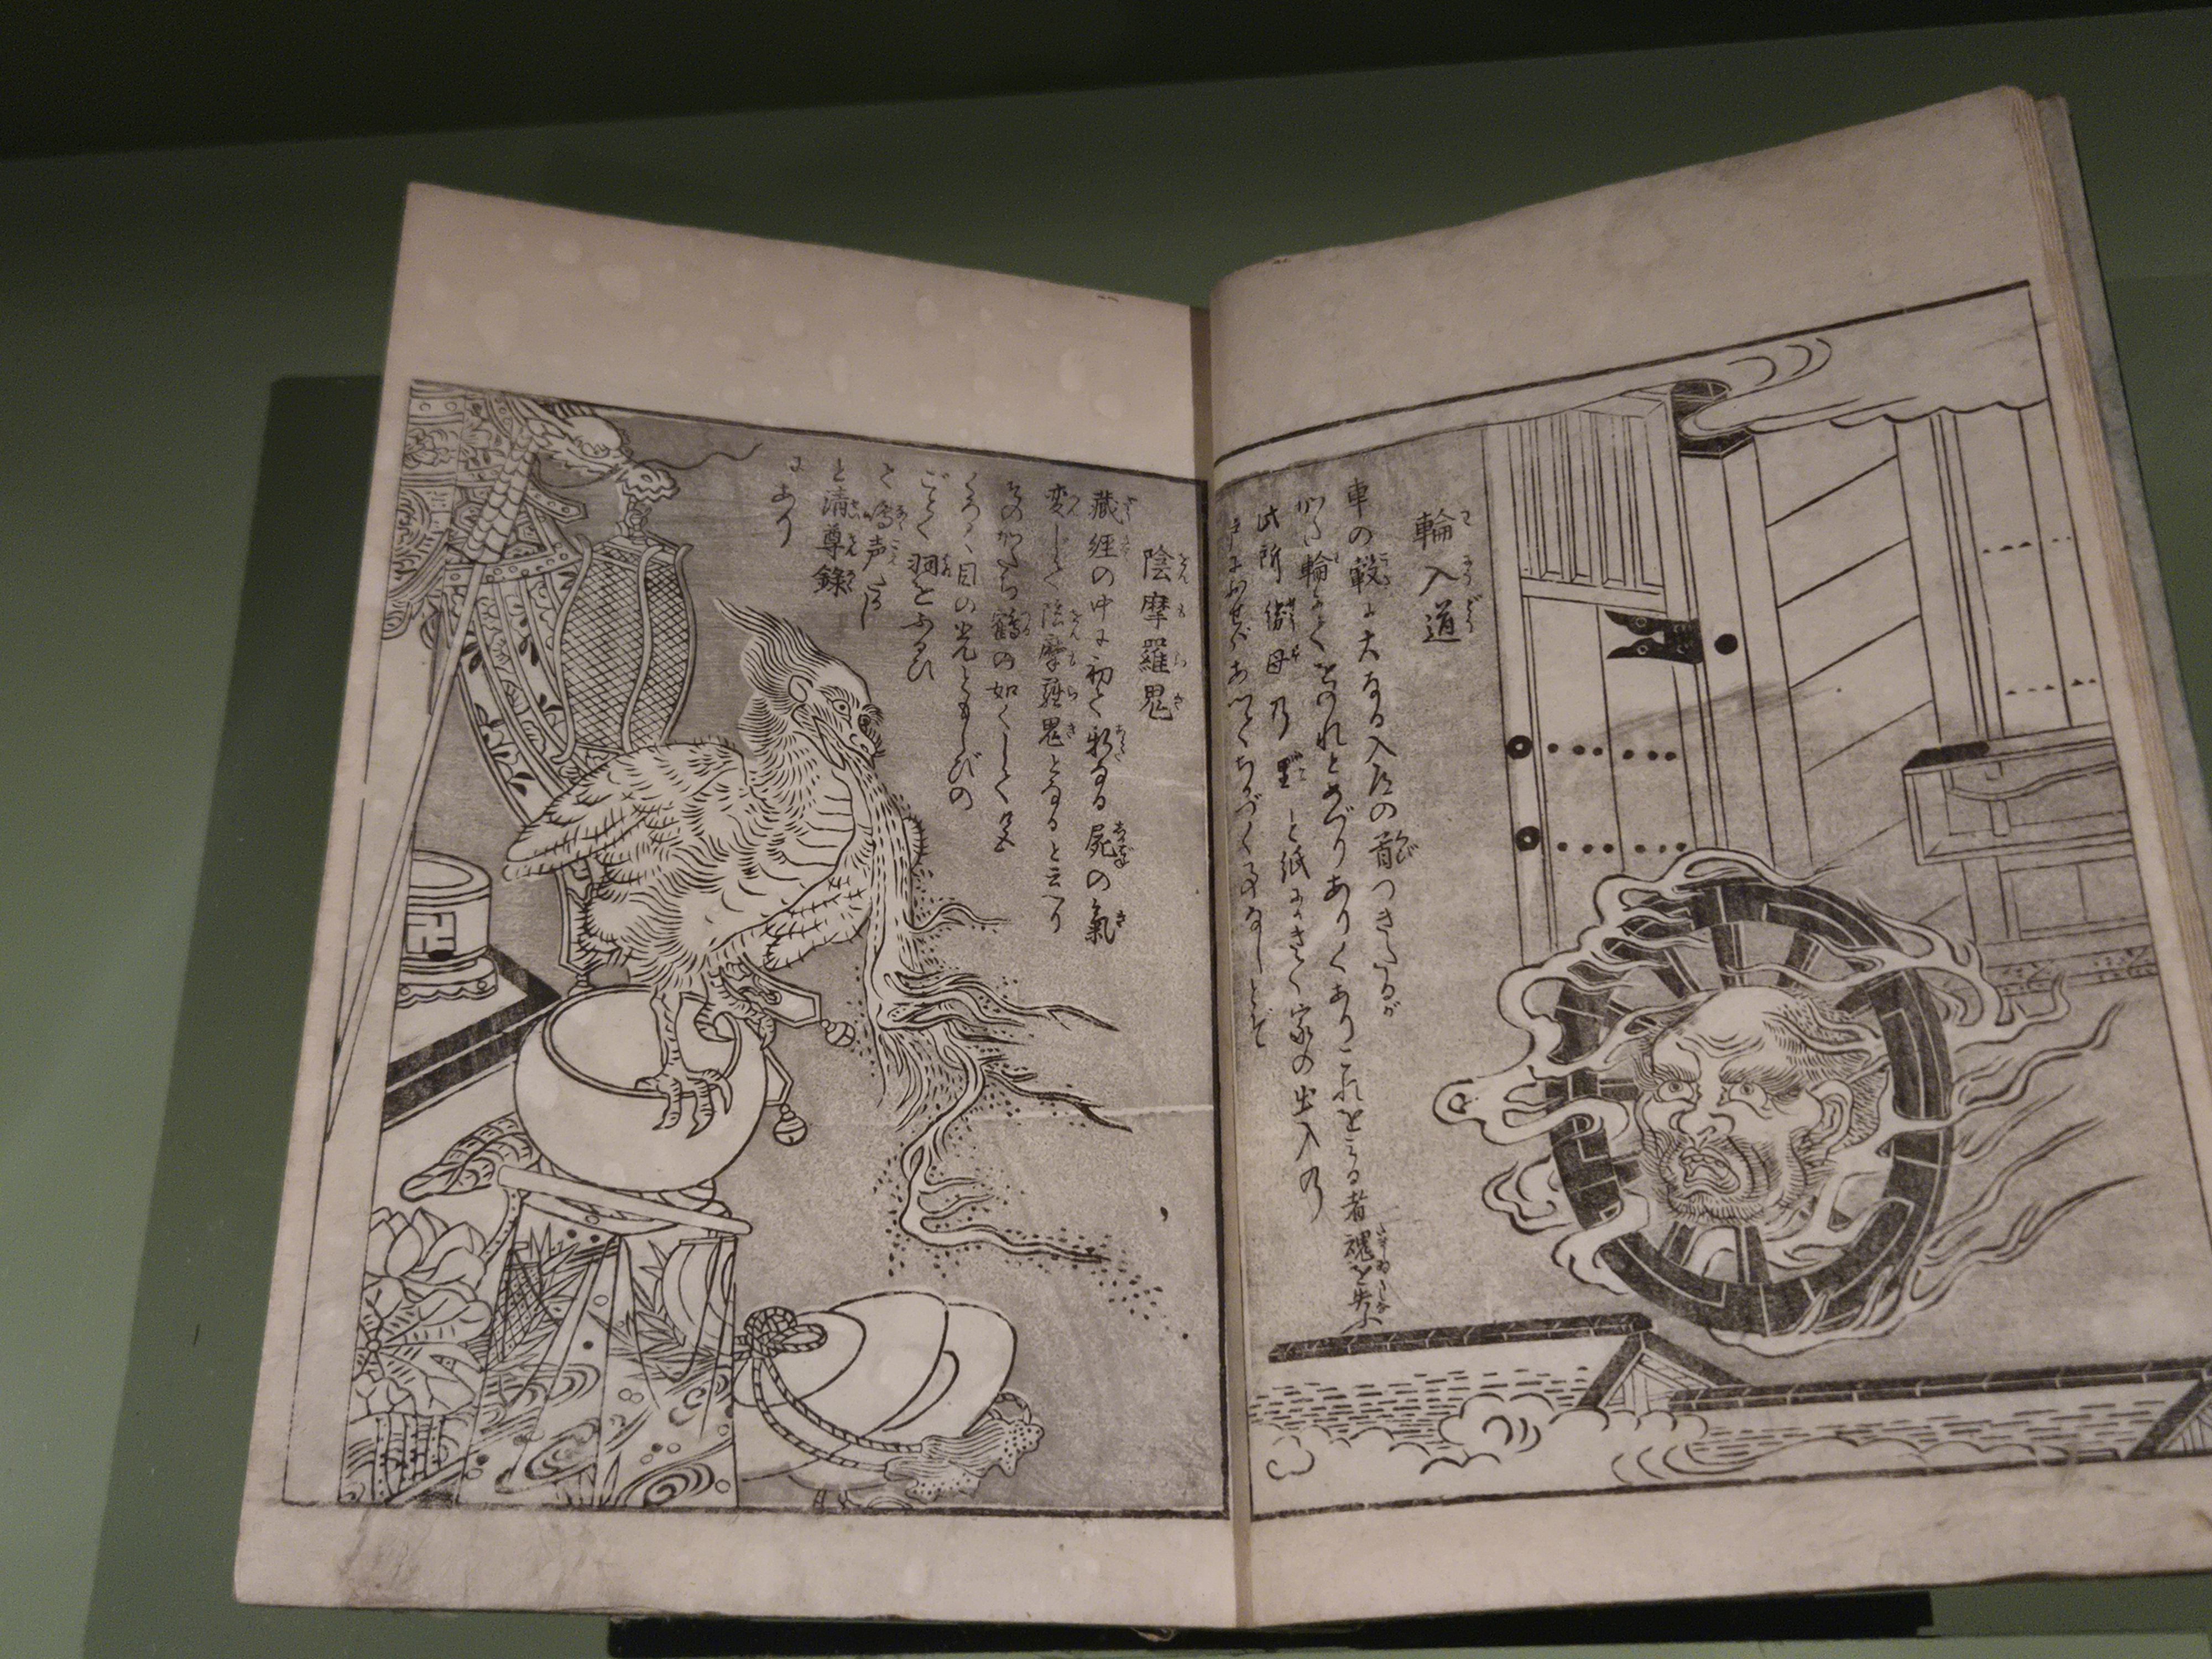 輪入道
車の轂に大なる入道の首つきたるが
かた輪にておのれとめぐりありくありこれをみる者魂を失ふ
此所勝母の里と紙にかきて家の出入の
戸におせばあへてちかづく事なしとぞ
陰摩羅鬼
蔵経の中に初て新なる屍の氣
変じて陰摩羅鬼となると云へり
そのかたち鶴の如くして色
くろく目の光ともしびの
ごとく羽をふるひ
て鳴声たかし
と清尊録
にあり